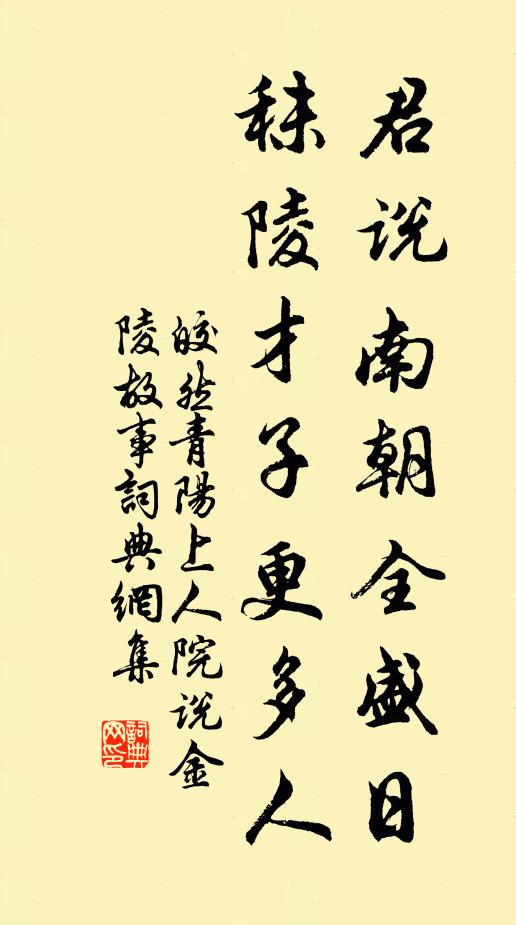 君说南朝全盛日
秣陵才子更多人
皎然青陽上人院说金
陵故事詞典網集
詞典